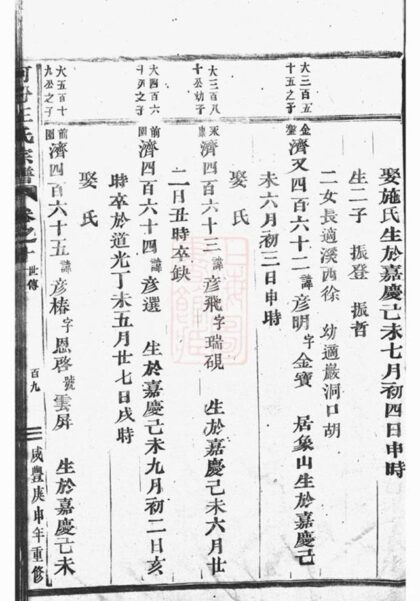 娶施氏生於嘉慶己未七月初四日申時
生二子 振登 振哲
二女長適溪西徐 幼適巖洞口胡
大三百五
十五之子
金盤
濟又四百六十二 諱彦明 字金寶 居象山生於嘉慶己
未六月初三日申時
娶氏
大三百八
十公幼子
濟四百六十三 諱彦飛 字瑞硯 生於嘉慶己未六月廿
二日丑時卒缺
大四百六
十列之子
前園
濟四百六十四 諱彦選 生於嘉慶己未九月初二日亥
時卒於道光丁未五月廿七日戌時
娶氏
大五百十
九公之子
前園
濟四百六十五 諱彦椿 字恩啓 號雲屏 生於嘉慶己未
王氏宗譜
卷之十
世傳
百九
咸豐庚申年重修